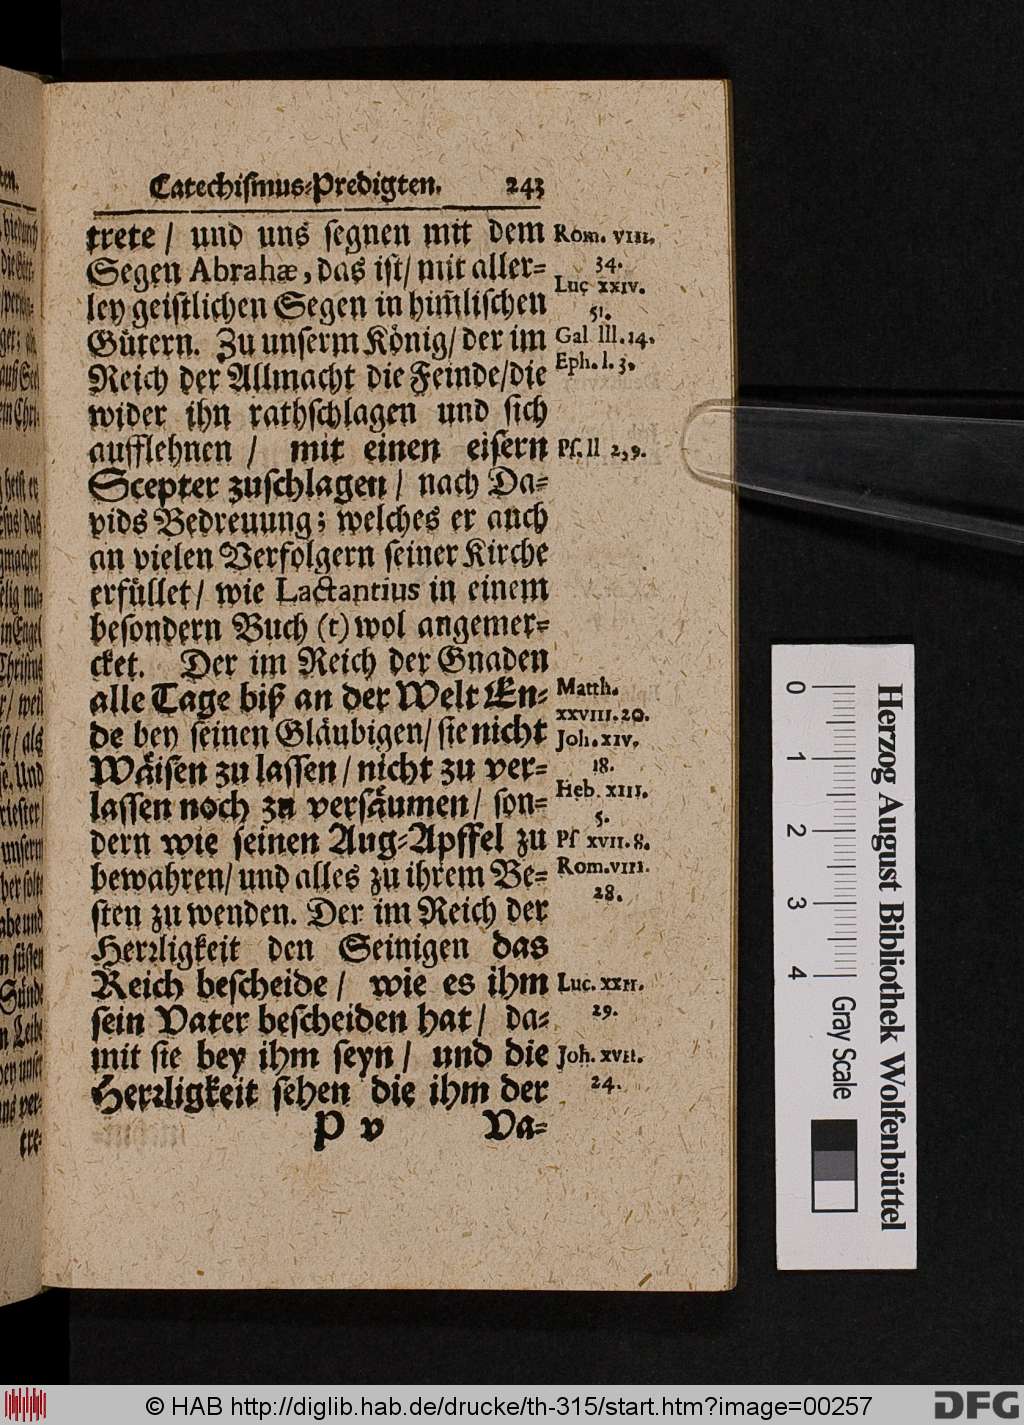 Catechiſmus-Predigten. 243
trete / und uns ſegnen mit dem
Segen Abrahæ, das iſt / mit aller-
ley geiſtlichen Segen in him̃liſchen
Gütern. Zu unſerm König / der im
Reich der Allmacht die Feinde / die
wider ihn rathſchlagen und ſich
aufflehnen / mit einen eiſern
Scepter zuſchlagen / nach Da-
vids Bedreuung; welches er auch
an vielen Verfolgern ſeiner Kirche
erfüllet / wie Lactantius in einem
beſondern Buch (t) wol angemer-
cket. Der im Reich der Gnaden
alle Tage biß an der Welt En-
de bey ſeinen Gläubigen / ſie nicht
Wäiſen zu laſſen / nicht zu ver-
laſſen noch zu verſäumen / ſon-
dern wie ſeinen Aug-Apffel zu
bewahren / und alles zu ihrem Be-
ſten zu wenden. Der im Reich der
Herꝛligkeit den Seinigen das
Reich beſcheide / wie es ihm
ſein Vater beſcheiden hat / da-
mit ſie bey ihm ſeyn / und die
Herꝛligkeit ſehen die ihm der
P v Va-
Rom. VIII.
34.
Luc XXIV.
51.
Gal III. 14.
Eph. I. 3.
Pſ. II 2, 9.
Matth.
XXVIII. 20.
Joh. XIV.
18.
Heb. XIII.
5.
Pſ XVII. 8.
Rom. VIII.
28.
Luc. XXII.
29.
Joh. XVII.
24.
0 1 2 3 4
Gray Scale
Herzog August Bibliothek Wolfenbüttel
© HAB http://diglib.hab.de/drucke/th-315/start.htm?image=00257
DFG